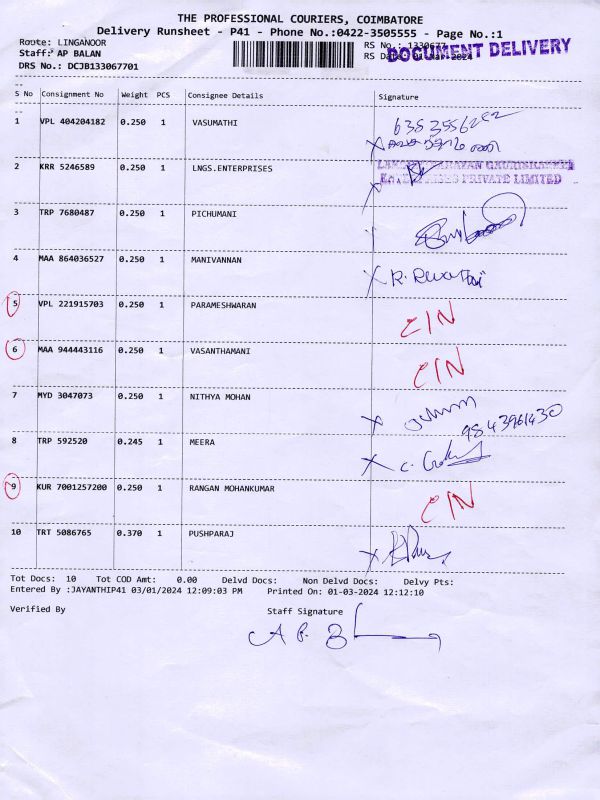 THE PROFESSIONAL COURIERS, COIMBATORE
Delivery Runsheet - P41 - Phone No.:0422-3505555 - Page No.:1
Route: LINGANOOR
RS No.: 1330677
DOCUMENT DELIVERY
Staff: AP BALAN
RS Date: 01-Mar-2024
DRS No.: DCJB133067701
S No Consignment No Weight PCS Consignee Details Signature
1 VPL 404204182 0.250 1 VASUMATHI
2 KRR 5246589 0.250 1 LNGS.ENTERPRISES
PRIVATE LIMITED
3 TRP 7680487 0.250 1 PICHUMANI
4 MAA 864036527 0.250 1 MANIVANNAN
5 VPL 221915703 0.250 1 PARAMESHWARAN C/N
6 MAA 944443116 0.250 1 VASANTHAMANI C/N
7 MYD 3047073 0.250 1 NITHYA MOHAN
9843961430
8 TRP 592520 0.245 1 MEERA
9 KUR 7001257200 0.250 1 RANGAN MOHANKUMAR C/N
10 TRT 5086765 0.370 1 PUSHPARAJ
Tot Docs: 10 Tot COD Amt: 0.00 Delvd Docs: Non Delvd Docs: Delvy Pts:
Entered By :JAYANTHIP41 03/01/2024 12:09:03 PM Printed On: 01-03-2024 12:12:10
Verified By Staff Signature